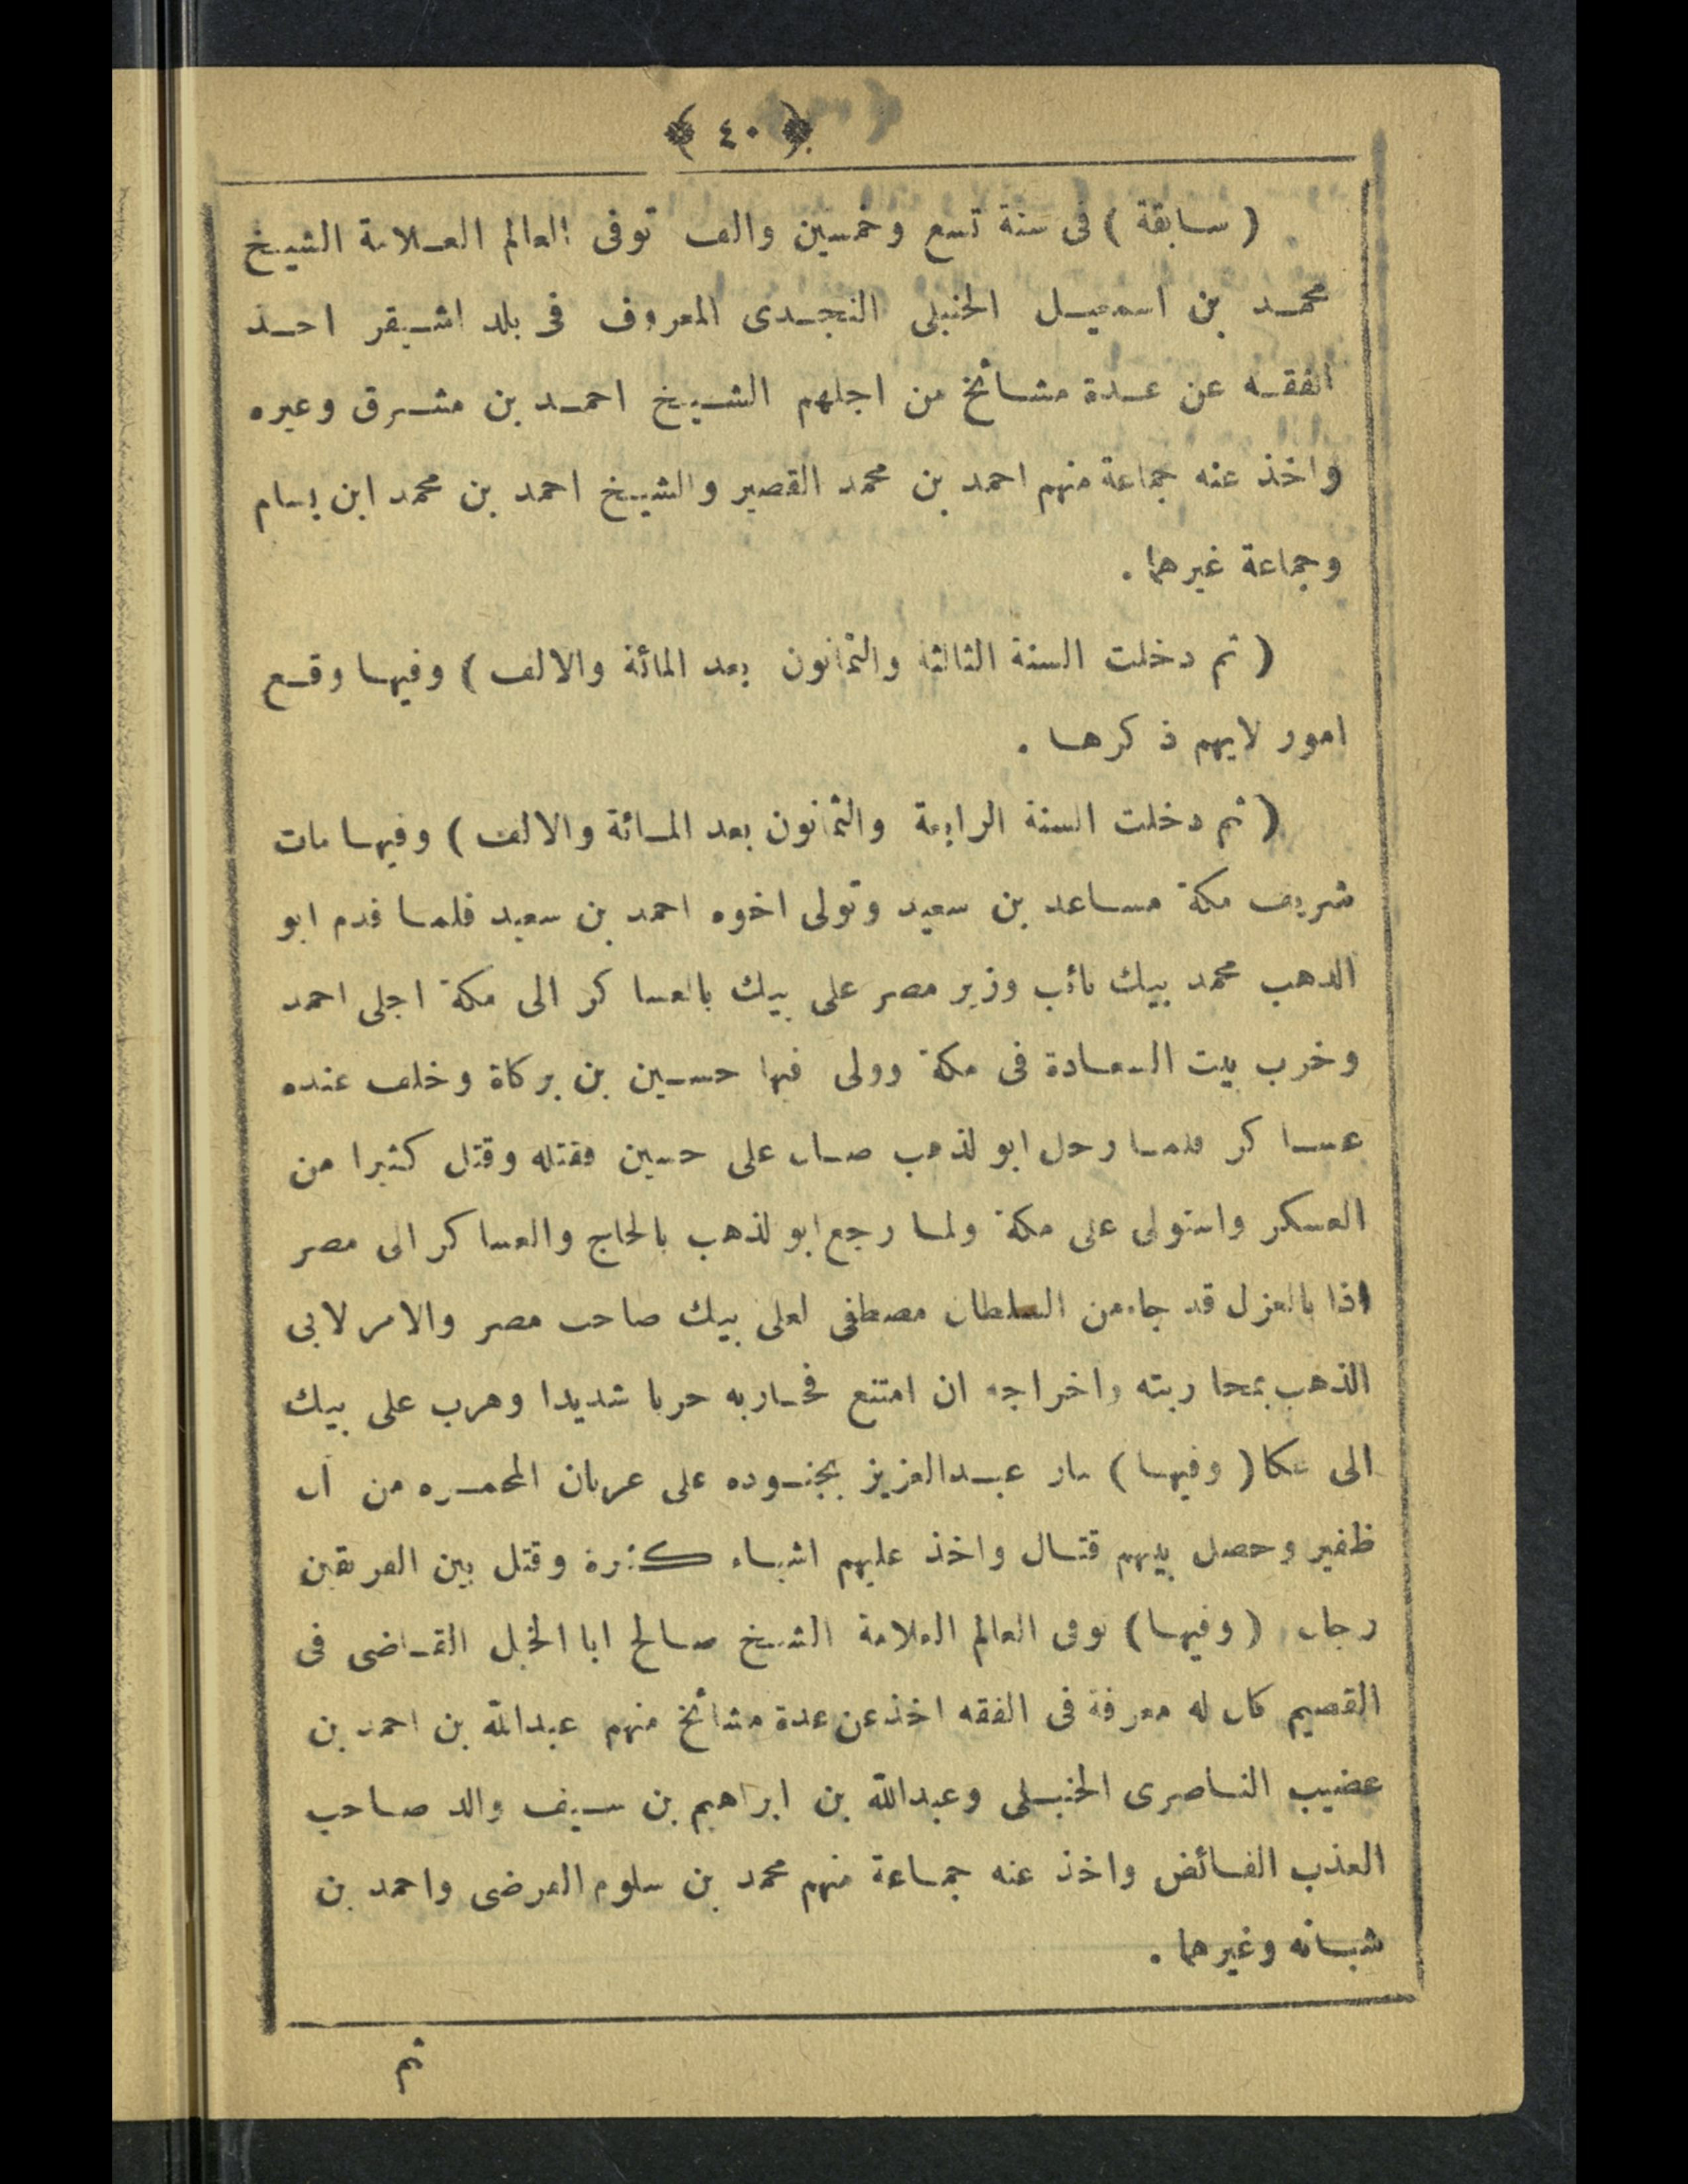 ﴿ ٤٠ ﴾
( سابقة ) فى سنة تسع وخمسين والف توفى العالم العلامة الشيخ
محمد بن اسمعيل الحنبلى النجدى المعروف فى بلد اشيقر اخذ
الفقه عن عدة مشائخ من اجلهم الشيخ احمد بن مشرق وغيره
واخذ عنه جماعة منهم احمد بن محمد القصير والشيخ احمد بن محمد ابن بسام
وجماعة غيرهما .
( ثم دخلت السنة الثالثة والثمانون بعد المائة والالف ) وفيها وقع
امور لايهم ذكرها .
( ثم دخلت السنة الرابعة والثمانون بعد المائة والالف ) وفيها مات
شريف مكة مساعد بن سعيد وتولى اخوه احمد بن سعيد فلما قدم ابو
الذهب محمد بيك نائب وزير مصر على بيك بالعساكر الى مكة اجلى احمد
وخرب بيت السعادة فى مكة وولى فيها حسين بن بركاة وخلف عنده
عساكر فلما رحل ابو لذهب صال على حسين فقتله وقتل كثيرا من
العسكر واستولى على مكة ولما رجع ابو لذهب بالحاج والعساكر الى مصر
اذا بالعزل قد جاء من السلطان مصطفى لعلى بيك صاحب مصر والامر لابى
الذهب بمحاربته واخراجه ان امتنع فحاربه حربا شديدا وهرب على بيك
الى عكا ( وفيها ) سار عبدالعزيز بجنوده على عربان المحمره من آل
ظفير وحصل بينهم قتال واخذ عليهم اشياء كثيرة وقتل بين الفريقين
رجال ( وفيها ) توفى العالم العلامة الشيخ صالح ابا الخيل القاضى فى
القصيم كان له معرفة فى الفقه اخذ عن عدة مشائخ منهم عبدالله بن احمد بن
عضيب الناصرى الحنبلى وعبدالله بن ابراهيم بن سيف والد صاحب
العذب الفائض واخذ عنه جماعة منهم محمد بن سلوم الفرضى واحمد بن
شبانه وغيرهما .
ثم